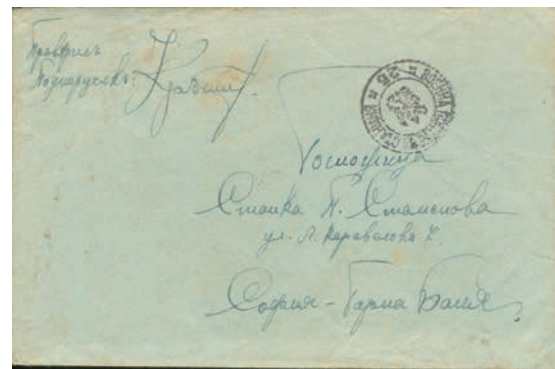 Проверилъ
Подпоручикъ:
Госпожица
Стойка П. Стаменова
ул. Л. Каравеловъ
София - Горна Баня
25